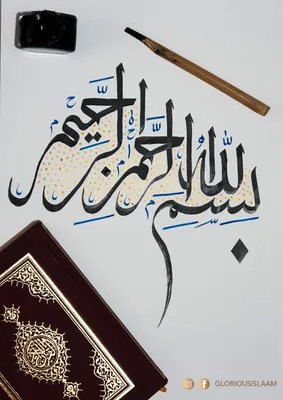 بِسْمِ اللّٰهِ الرَّحْمٰنِ الرَّحِيْمِ
GLORIOUSISLAAM